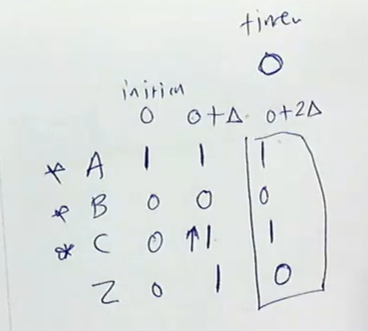 timer
0
initial
0 0+Δ 0+2Δ
* A 1 1 1
* B 0 0 0
* C 0 ↑1 1
Z 0 1 0